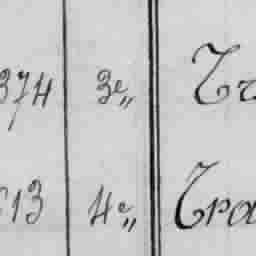 374 3e„ Tr
13 4e„ Tra